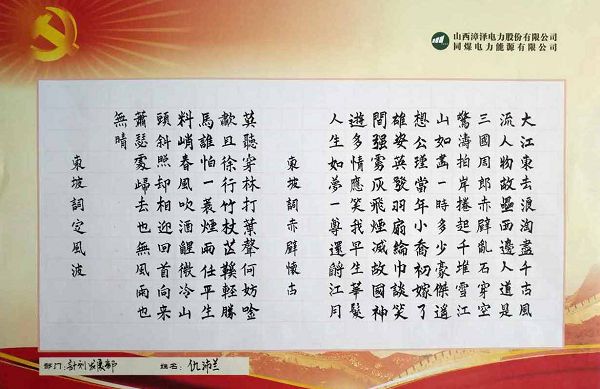 山西漳泽电力股份有限公司
同煤电力能源有限公司
大江東去浪淘盡千古風
流人物故壘西邊人道是
三國周郎赤壁亂石穿空
驚濤拍岸捲起千堆雪江
山如畫一時多少豪傑遥
想公瑾當年小喬初嫁了
雄姿英發羽扇綸巾談笑
間强虜灰飛煙滅故國神
遊多情應笑我早生華髮
人生如夢一尊還酹江月
東坡詞赤壁懷古
莫聽穿林打葉聲何妨唫
歗且徐行竹杖芒鞵輕勝
馬誰怕一蓑煙雨任平生
料峭春風吹酒醒微冷山
頭斜照却相迎回首向來
蕭瑟處歸去也無風雨也
無晴
東坡詞定風波
部门:计划发展部 姓名:仇沛兰